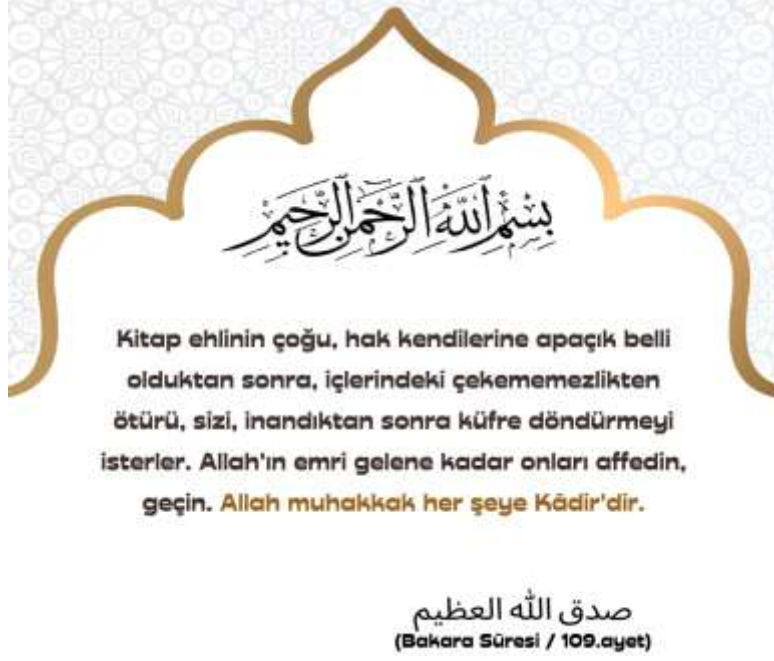 بِسْمِ ٱللَّهِ ٱلرَّحْمَٰنِ ٱلرَّحِيمِ
Kitap ehlinin çoğu, hak kendilerine apaçık belli
olduktan sonra, içlerindeki çekememezlikten
ötürü, sizi, inandıktan sonra küfre döndürmeyi
isterler. Allah'ın emri gelene kadar onları affedin,
geçin. Allah muhakkak her şeye Kâdir'dir.
صدق الله العظيم
(Bakara Sûresi / 109.ayet)